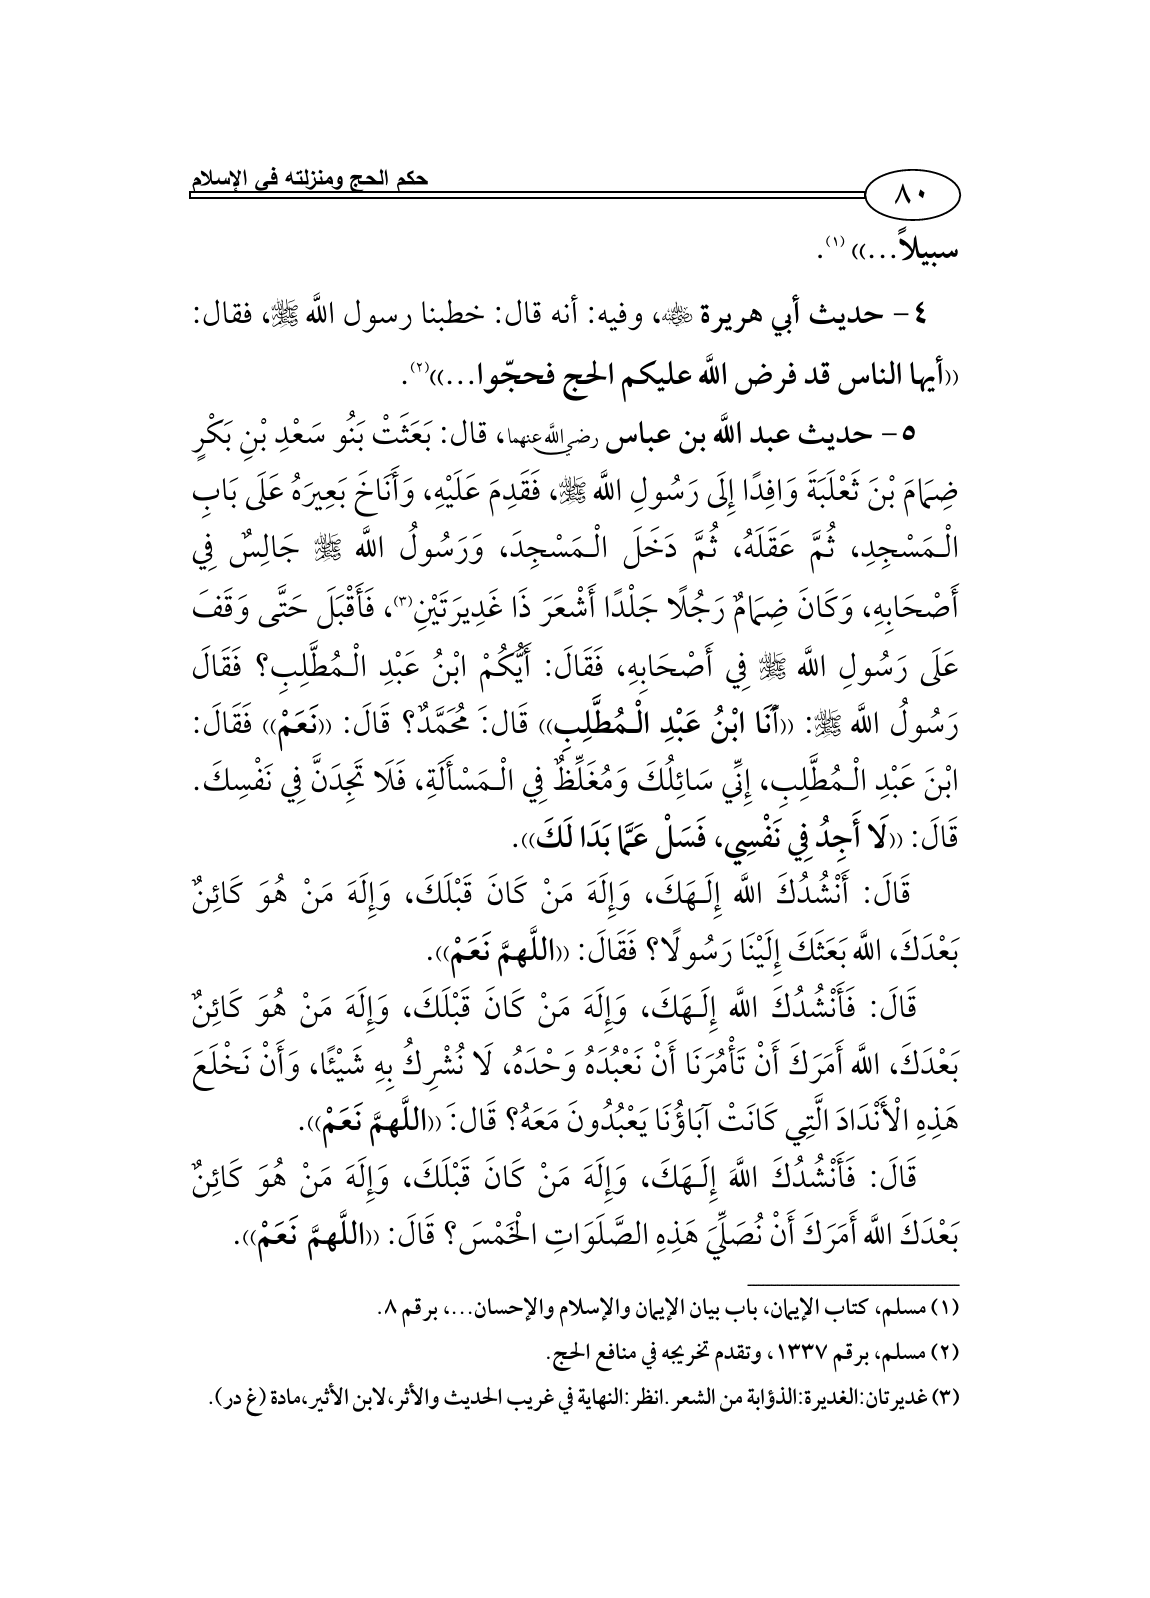 ٨٠
حكم الحج ومنزلته في الإسلام
سبيلاً...)) (١).
٤- حديث أبي هريرة رضي الله عنه، وفيه: أنه قال: خطبنا رسول الله ﷺ، فقال:
((أيها الناس قد فرض الله عليكم الحج فحجّوا...))(٢).
٥- حديث عبد الله بن عباس رضي الله عنهما، قال: بَعَثَتْ بَنُو سَعْدِ بْنِ بَكْرٍ
ضِمَامَ بْنَ ثَعْلَبَةَ وَافِدًا إِلَى رَسُولِ اللَّه ﷺ، فَقَدِمَ عَلَيْهِ، وَأَنَاخَ بَعِيرَهُ عَلَى بَابِ
الْـمَسْجِدِ، ثُمَّ عَقَلَهُ، ثُمَّ دَخَلَ الْـمَسْجِدَ، وَرَسُولُ اللَّه ﷺ جَالِسٌ فِي
أَصْحَابِهِ، وَكَانَ ضِمَامٌ رَجُلًا جَلْدًا أَشْعَرَ ذَا غَدِيرَتَيْنِ(٣)، فَأَقْبَلَ حَتَّى وَقَفَ
عَلَى رَسُولِ اللَّه ﷺ فِي أَصْحَابِهِ، فَقَالَ: أَيُّكُمْ ابْنُ عَبْدِ الْـمُطَّلِبِ؟ فَقَالَ
رَسُولُ اللَّه ﷺ: ((أَنَا ابْنُ عَبْدِ الْـمُطَّلِبِ)) قَالَ: مُحَمَّدٌ؟ قَالَ: ((نَعَمْ)) فَقَالَ:
ابْنَ عَبْدِ الْـمُطَّلِبِ، إِنِّي سَائِلُكَ وَمُغَلِّظٌ فِي الْـمَسْأَلَةِ، فَلَا تَجِدَنَّ فِي نَفْسِكَ.
قَالَ: ((لَا أَجِدُ فِي نَفْسِي، فَسَلْ عَمَّا بَدَا لَكَ)).
قَالَ: أَنْشُدُكَ اللَّه إِلَـهَكَ، وَإِلَهَ مَنْ كَانَ قَبْلَكَ، وَإِلَهَ مَنْ هُوَ كَائِنٌ
بَعْدَكَ، اللَّه بَعَثَكَ إِلَيْنَا رَسُولًا؟ فَقَالَ: ((اللَّهمَّ نَعَمْ)).
قَالَ: فَأَنْشُدُكَ اللَّه إِلَـهَكَ، وَإِلَهَ مَنْ كَانَ قَبْلَكَ، وَإِلَهَ مَنْ هُوَ كَائِنٌ
بَعْدَكَ، اللَّه أَمَرَكَ أَنْ تَأْمُرَنَا أَنْ نَعْبُدَهُ وَحْدَهُ، لَا نُشْرِكُ بِهِ شَيْئًا، وَأَنْ نَخْلَعَ
هَذِهِ الْأَنْدَادَ الَّتِي كَانَتْ آبَاؤُنَا يَعْبُدُونَ مَعَهُ؟ قَالَ: ((اللَّهمَّ نَعَمْ)).
قَالَ: فَأَنْشُدُكَ اللَّهَ إِلَـهَكَ، وَإِلَهَ مَنْ كَانَ قَبْلَكَ، وَإِلَهَ مَنْ هُوَ كَائِنٌ
بَعْدَكَ اللَّه أَمَرَكَ أَنْ نُصَلِّيَ هَذِهِ الصَّلَوَاتِ الْخَمْسَ؟ قَالَ: ((اللَّهمَّ نَعَمْ)).
(١) مسلم، كتاب الإيمان، باب بيان الإيمان والإسلام والإحسان...، برقم ٨.
(٢) مسلم، برقم ١٣٣٧، وتقدم تخريجه في منافع الحج.
(٣) غديرتان:الغديرة:الذؤابة من الشعر.انظر:النهاية في غريب الحديث والأثر،لابن الأثير،مادة (غ در).